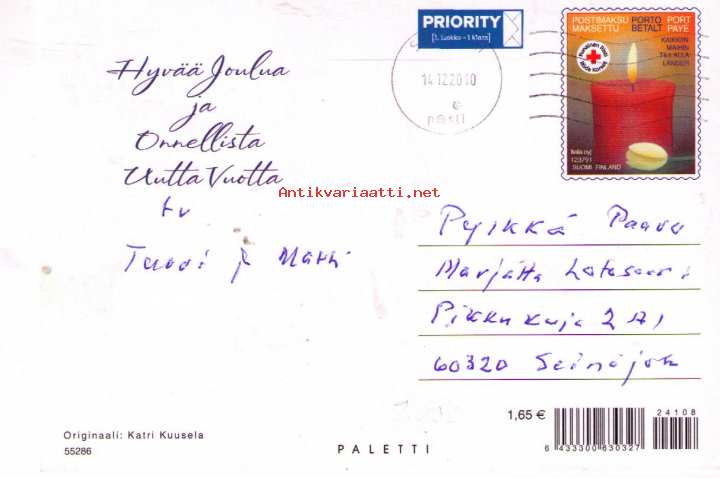 PRIORITY
[1. Luokka - 1 Klass]
14.12.2010
posti
POSTIMAKSU PORTO PORT
MAKSETTU BETALT PAYE
KAIKKIIN
MAIHIN
TILL ALLA
LÄNDER
Punainen Risti
Röda Korset
Itella Oyj
123791
SUOMI FINLAND
Hyvää Joulua
ja
Onnellista
Uutta Vuotta
Antikvariaatti.net
tv
Taavi ja Matti
Pylkkä Paavo
Marjatta
Pikkukuja 2 A1
60320 Seinäjoki
1,65 €
24108
6 433300 630327
Originaali: Katri Kuusela
55286
PALETTI